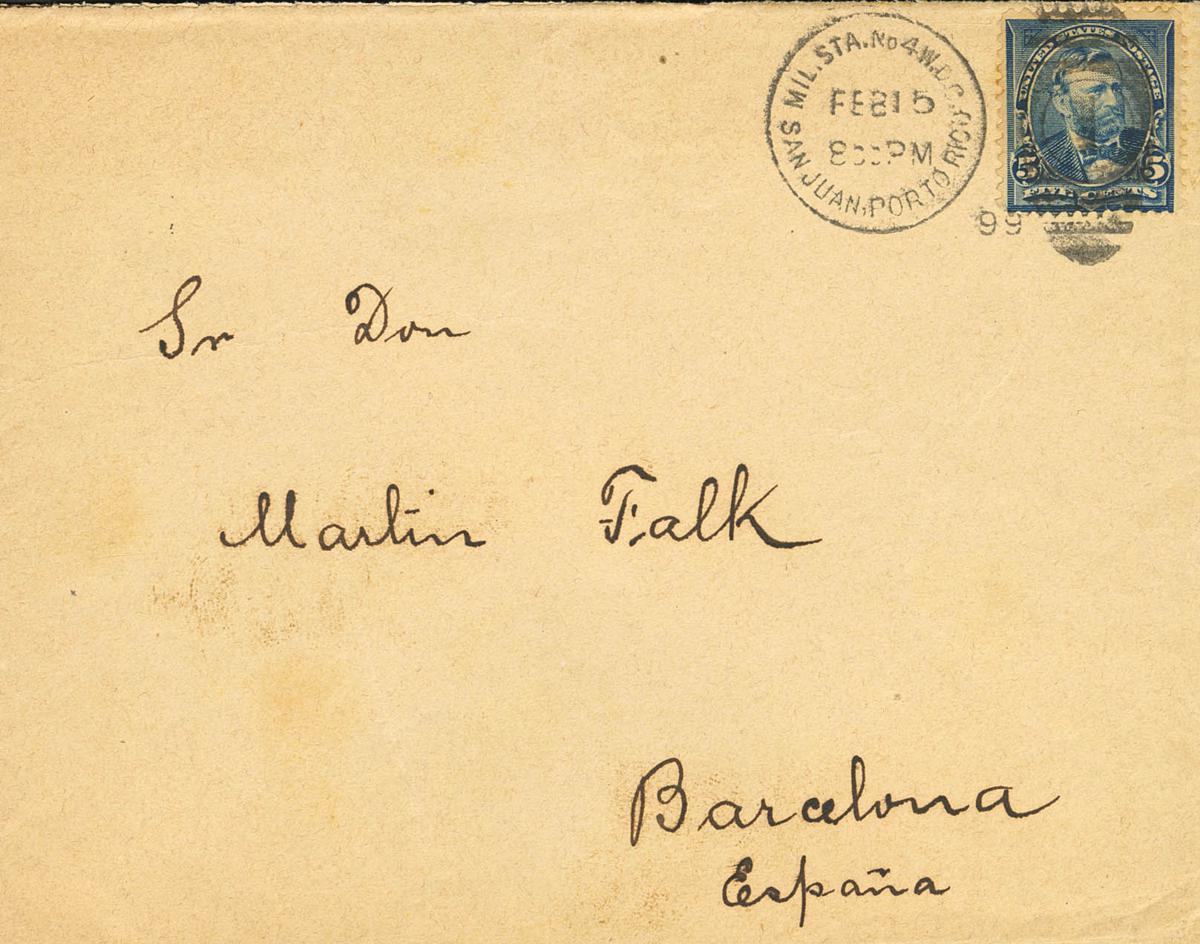 MIL. STA. No 4. W.D.C.
FEB 15
8 PM
SAN JUAN, PORTO RICO
99
UNITED STATES POSTAGE
5 5
FIVE CENTS
Sr Don
Martin Falk
Barcelona
España